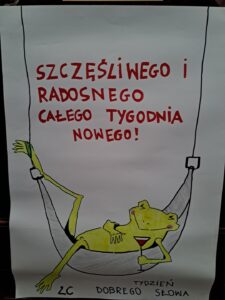 SZCZĘŚLIWEGO I
RADOSNEGO
CAŁEGO TYGODNIA
NOWEGO!
TYDZIEŃ
ŁC DOBREGO SŁOWA